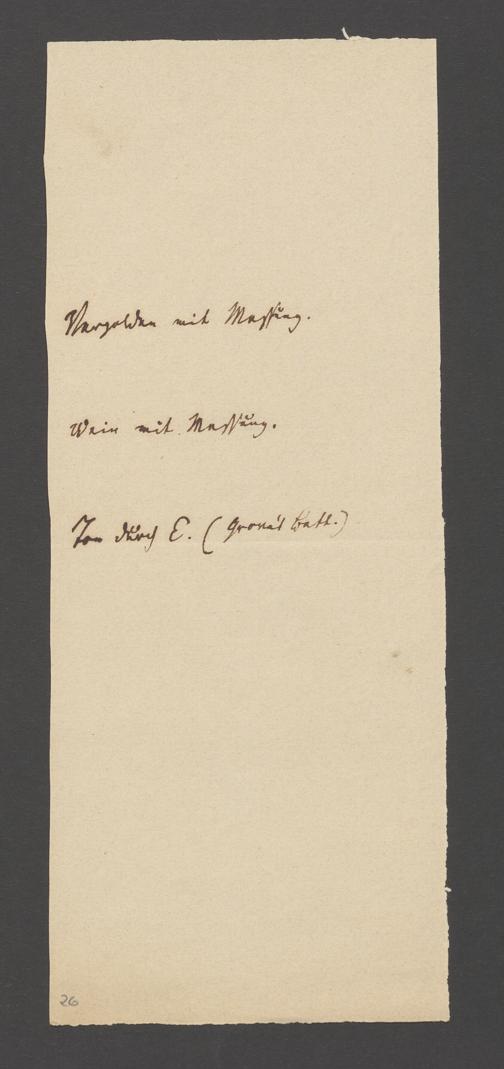 Vergolden mit Messing.
Wein mit Messing.
Ton durch E. (Grove's Batt.)
26